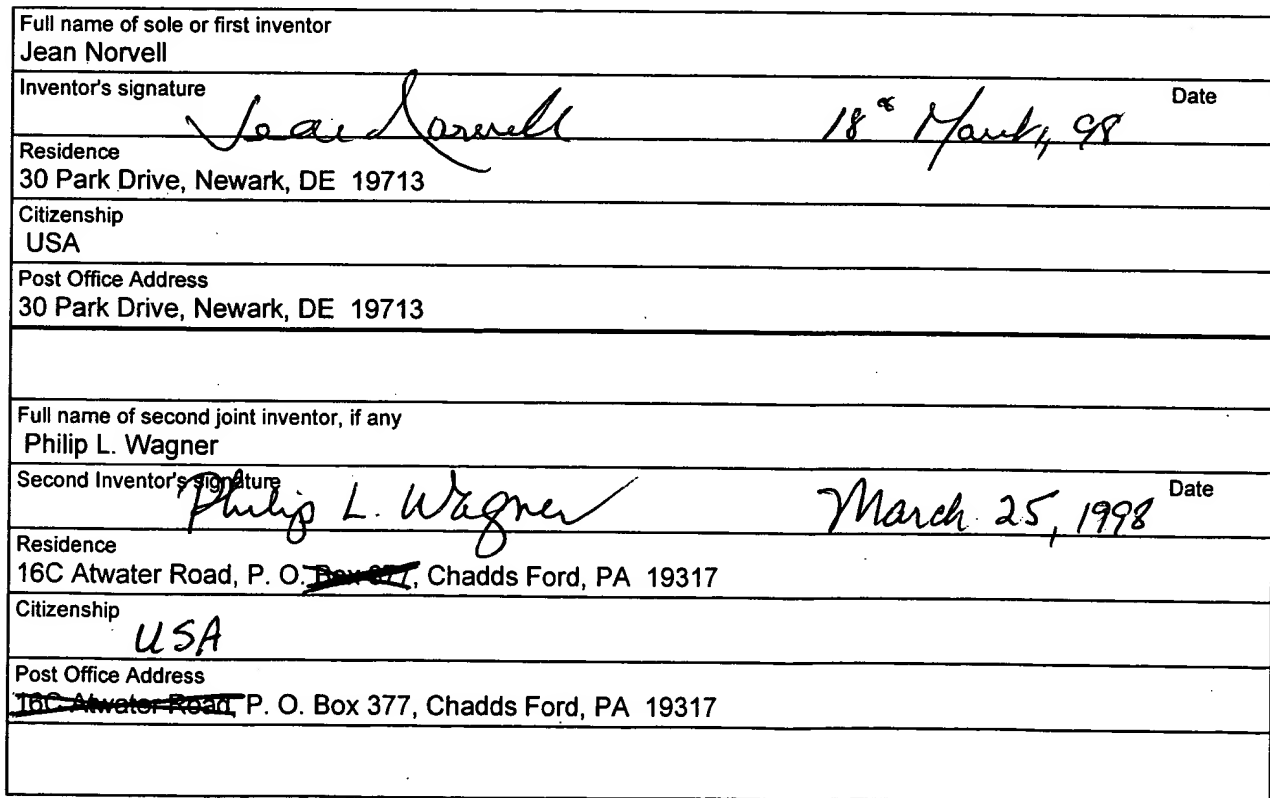 Full name of sole or first inventor
Jean Norvell
Inventor's signature Jean Norvell 18 March, 98 Date
Residence
30 Park Drive, Newark, DE 19713
Citizenship
USA
Post Office Address
30 Park Drive, Newark, DE 19713
Full name of second joint inventor, if any
Philip L. Wagner
Second Inventor's signature Philip L. Wagner March 25, 1998 Date
Residence
16C Atwater Road, P. O. Box 377, Chadds Ford, PA 19317
Citizenship
USA
Post Office Address
16C Atwater Road, P. O. Box 377, Chadds Ford, PA 19317